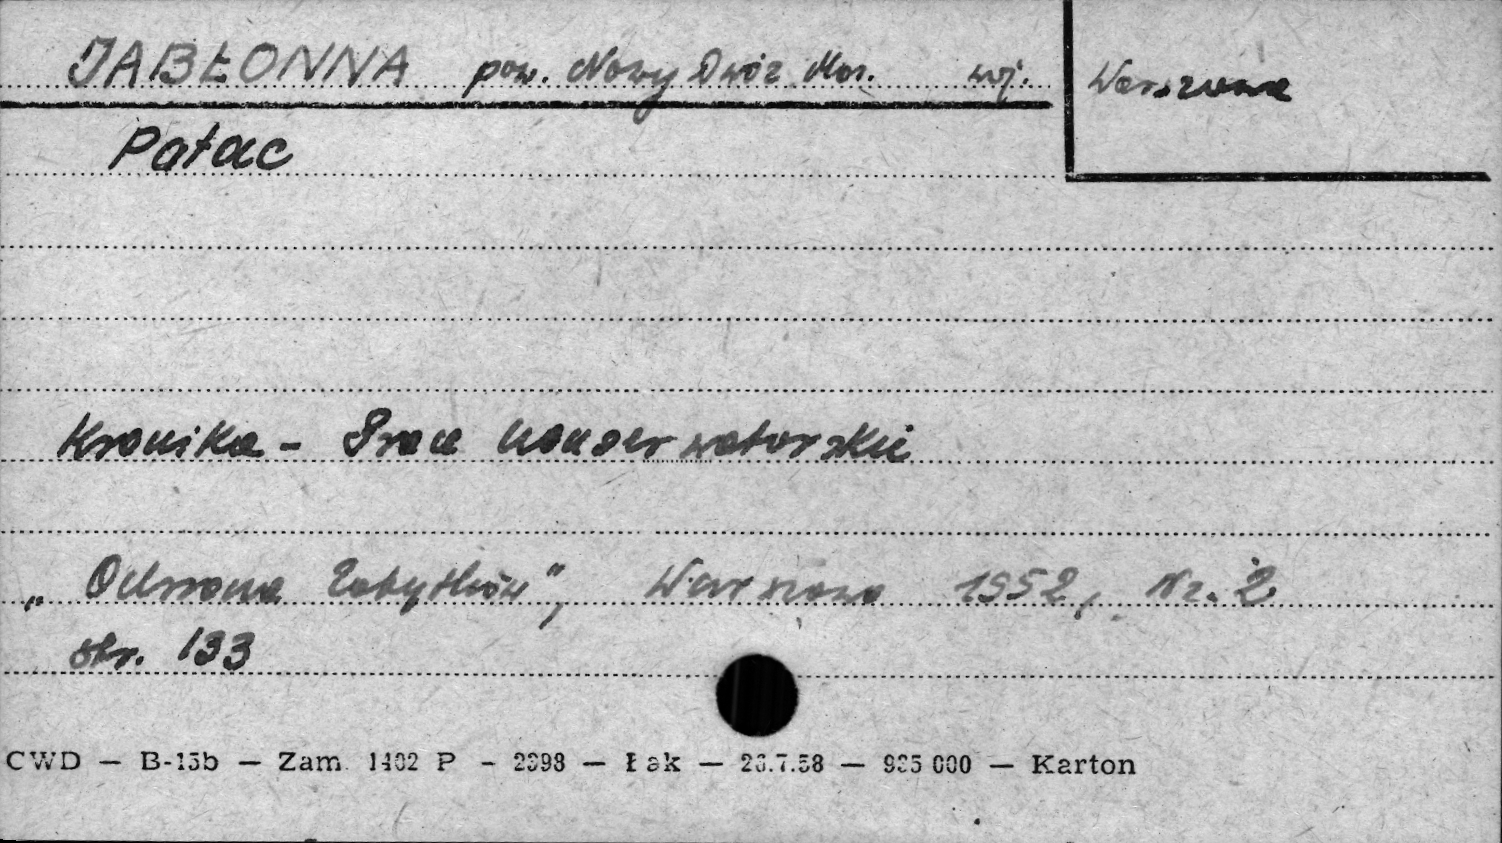 JABŁONNA pow. Nowy Dwór Maz. woj. Warszawa
Pałac
Kronika - Prace konserwatorskie
„Ochrona Zabytków", Warszawa 1952, Nr. 2
str. 133
CWD — B-15b — Zam. 1402 P - 2398 — Łak — 23.7.58 — 935 000 — Karton